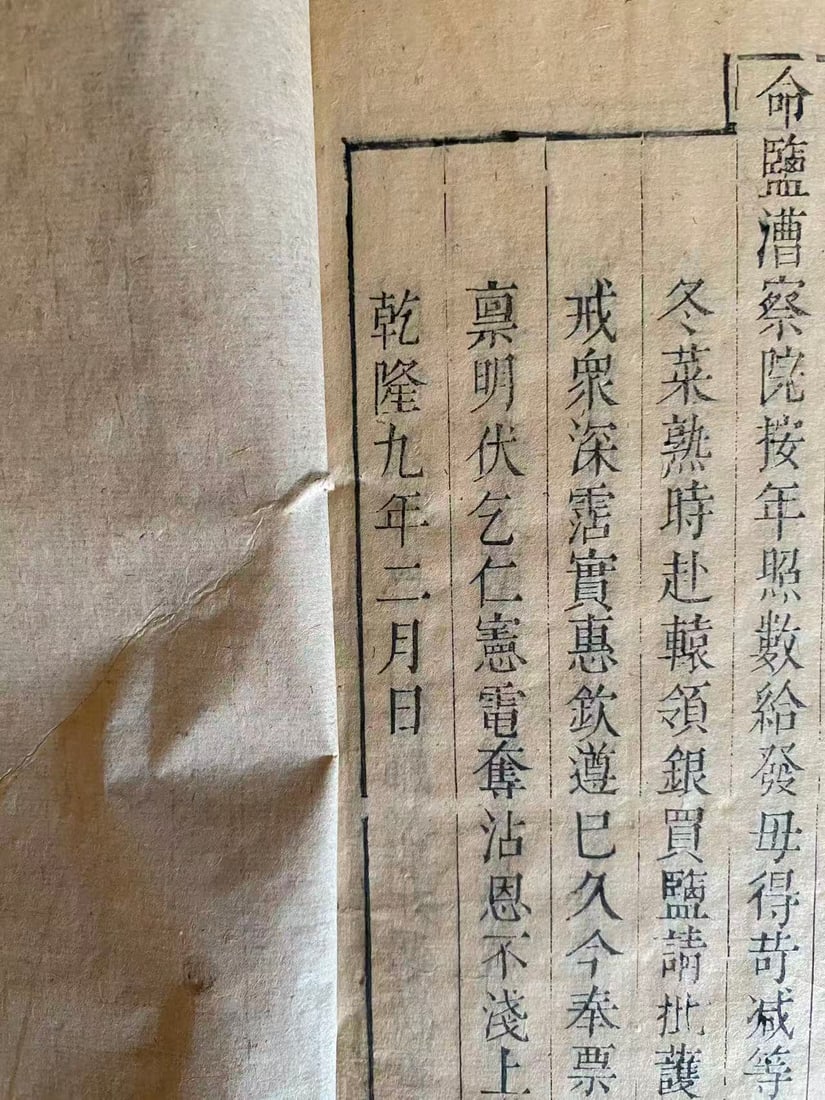 命鹽漕察院按年照數給發毋得苛减等
冬菜熟時赴轅領銀買鹽請批護
戒衆深霑實惠欽遵巳久今奉票
禀明伏乞仁憲電奪沾恩不淺上
乾隆九年二月日